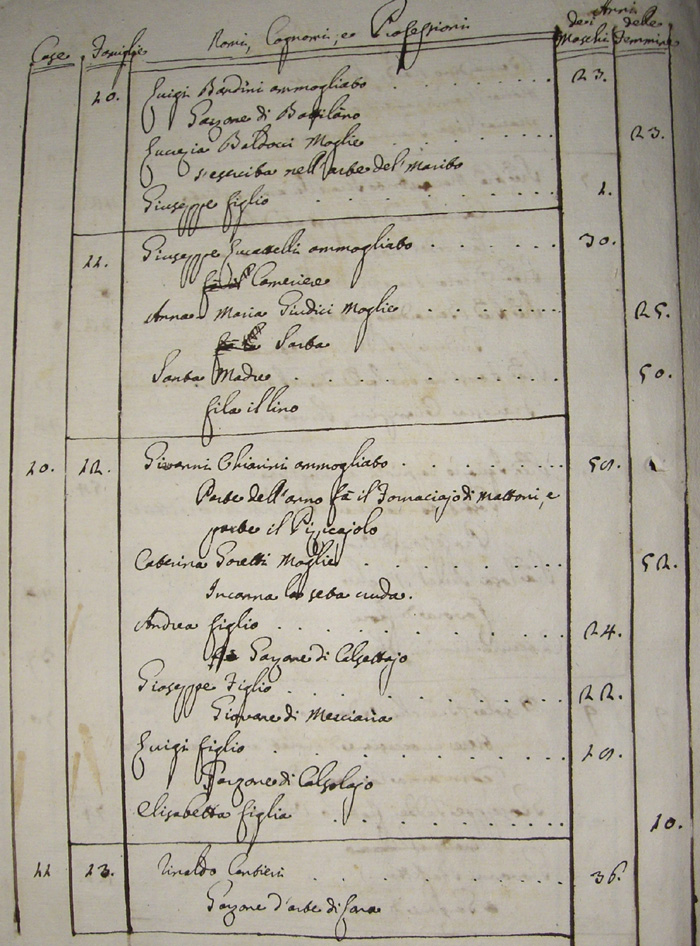 Anni
Case Famiglie Nomi, Cognomi, e Professioni dei Maschi delle Femmine
20. Luigi Bardini ammogliato 23.
Garzone di Battilano
Lucrezia Baldocci Moglie 23.
s'esercita nell'arte del Marito
Giuseppe figlio 1.
21. Giuseppe Lucattelli ammogliato 30.
fà il Cameriere
Anna Maria Giudici Moglie 25.
fà la Sarta
Santa Madre 50.
fila il lino
20. 22. Giovanni Chiarini ammogliato
Parte dell'anno fà il Fornaciajo di Mattoni, e
parte il Pizzicajolo
Caterina Goretti Moglie 52.
Incanna la seta cruda.
Andrea figlio 24.
Garzone di Calzettajo
Gioseppe Figlio 22.
Giovane di Mesciaria
Luigi figlio
Garzone di Calzolajo
Elisabetta figlia 10.
23. Rinaldo 36.
Garzone d'arte di Lana